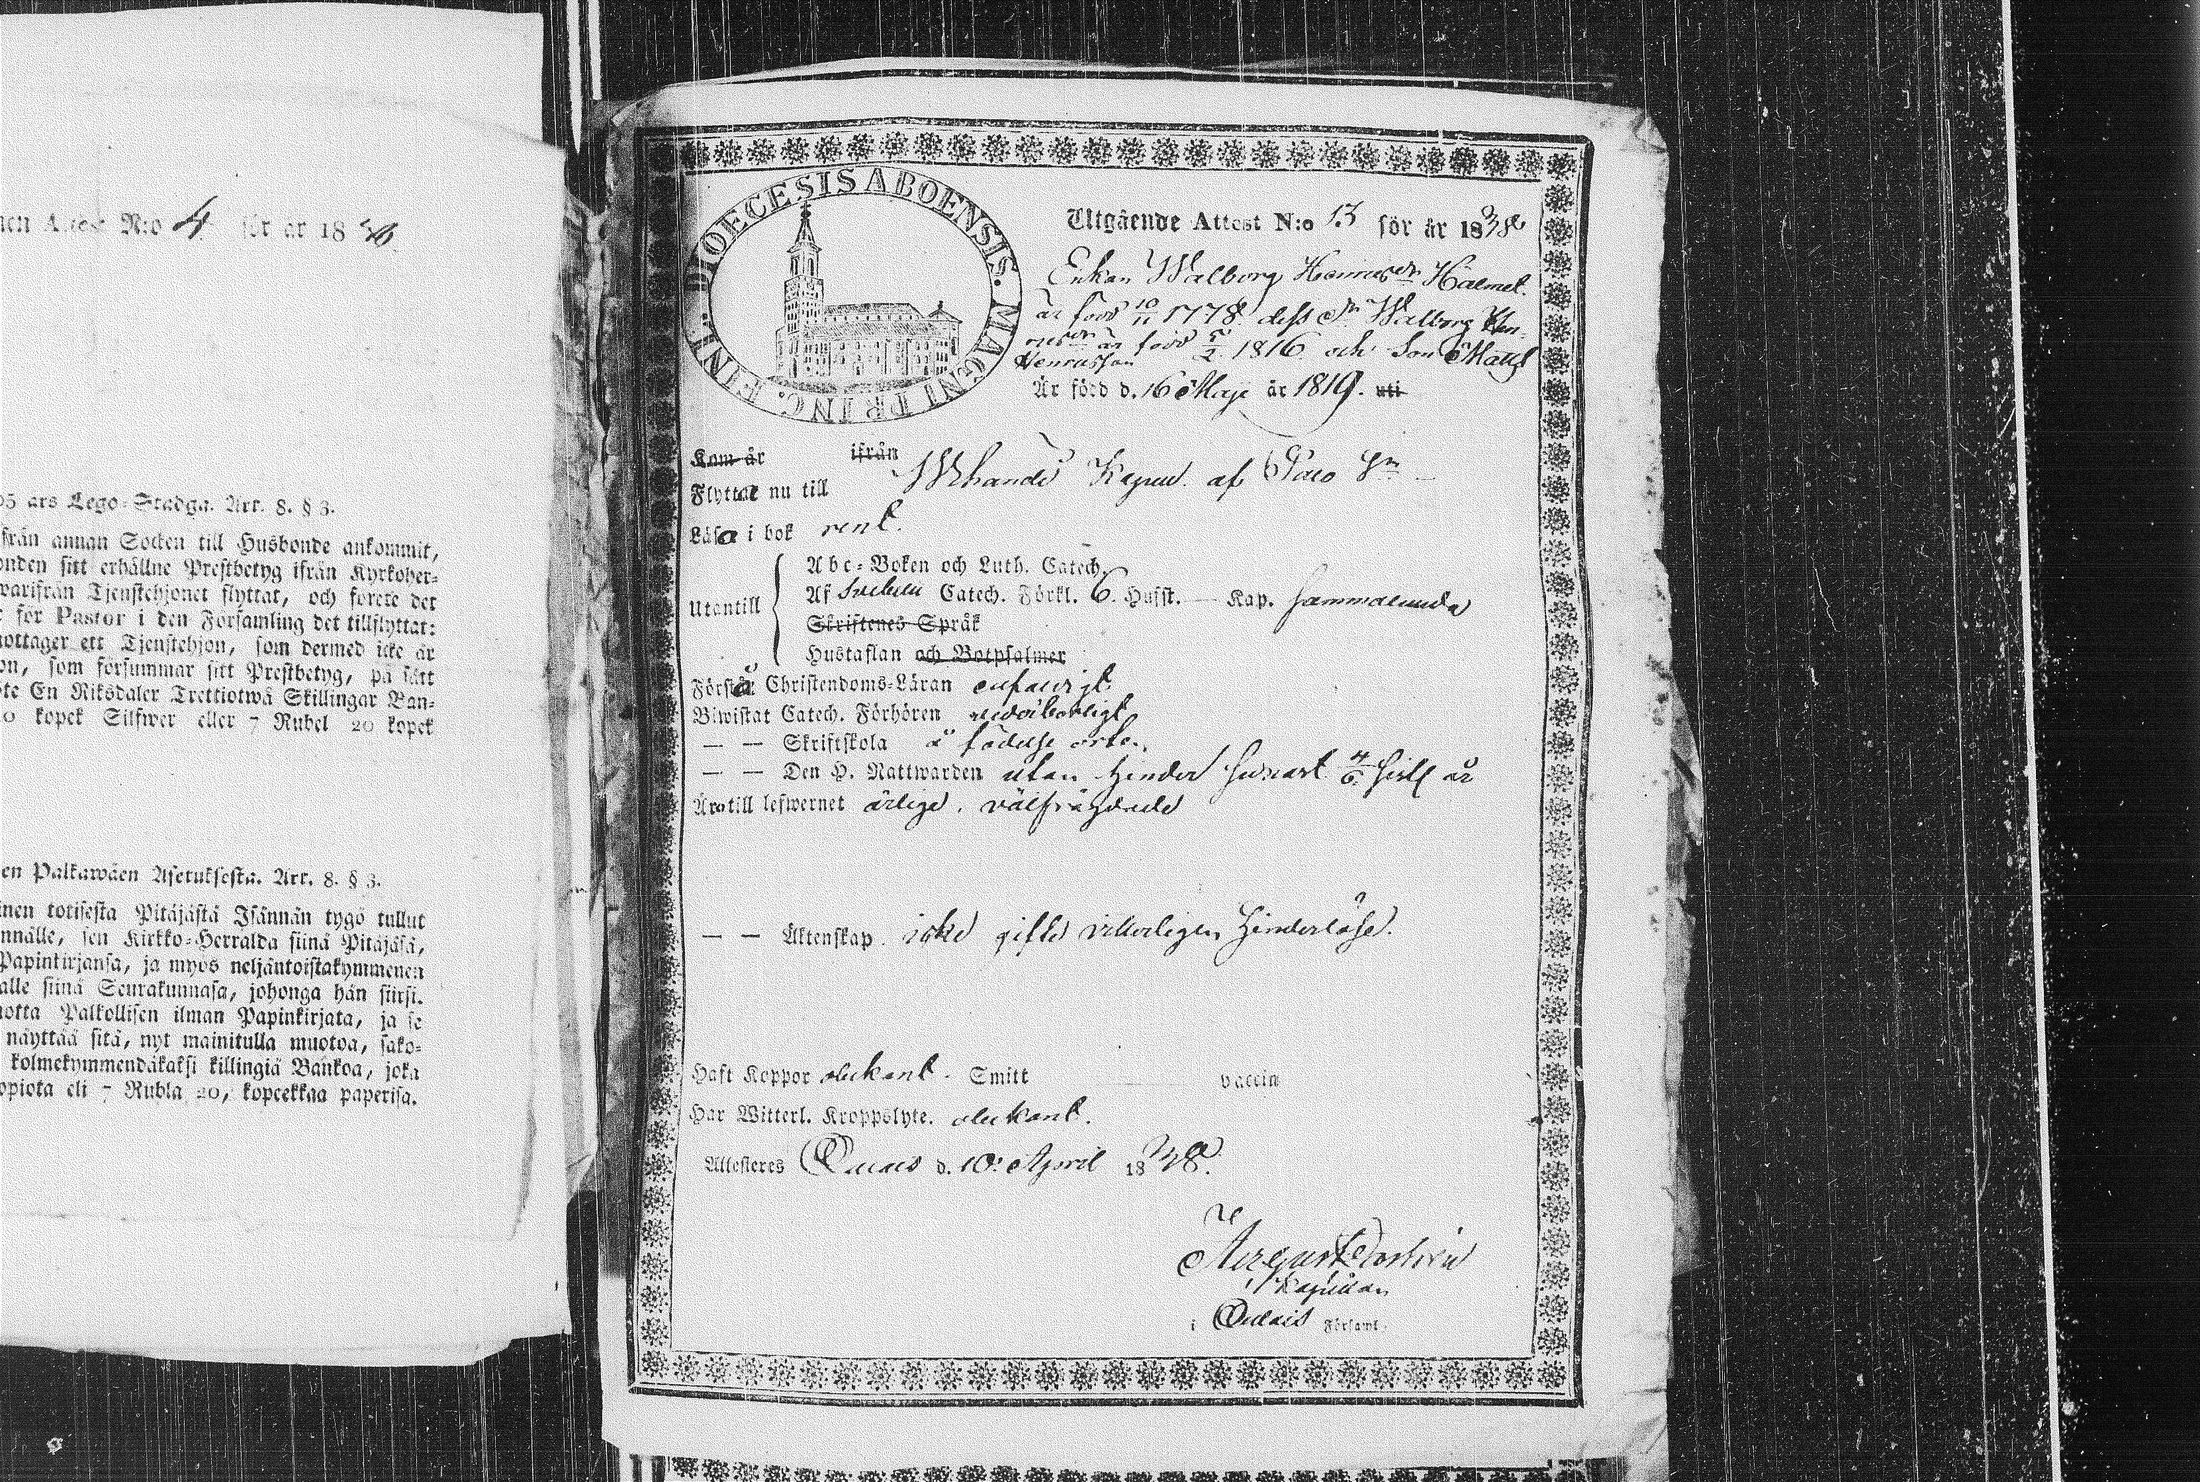 N:o 4 för år 18
års Lego-Stadga. Art. 8. § 3.
från annan Socken till Husbonde ankommit,
sitt erhållne Prestbetyg ifrån Kyrkoher-
warifrån Tjenstehjonet flyttat, och förete det
för Pastor i den Församling det tillflyttat:
mottager ett Tjenstehjon, som dermed icke är
som försummar sitt Prestbetyg, på sätt
En Riksdaler Trettiotwå Skillingar Ban-
kopek Silfwer eller 7 Rubel 20 kopek
en Palkawäen Asetuksesta. Art. 8. § 3.
toisesta Pitäjästä Isännän tygö tullut
sen Kirkko-Herralda siinä Pitäjäsä,
Papinkirjansa, ja myös neljäntoistakymmenen
siinä Seurakunnasa, johonga hän siirsi.
Palkollisen ilman Papinkirjata, ja se
näyttää sitä, nyt mainitulla muotoa, sako-
kolmekymmendäkaksi killingiä Bankoa, joka
eli 7 Rubla 20, kopeekkaa paperisa.
DIOECESIS ABOENSIS. MAGNI PRINC. FINL.
Utgående Attest N:o 13 för år 1838
Enkan Walborg Henricsdr Halmet.
är född 10/11 1778. dess Dr Walborg Hen-
ricsdr är född 5/2 1816 och Son Matts
Henricsson
Är född d. 16 Maji år 1819. uti
Kom år ifrån
Flyttar nu till Kapell af Sn
Läsa i bok rent.
Utantill
Abc-Boken och Luth. Catech.
Af Svebelii Catech. Förkl. 6. Hufst. — Kap. sammalunda
Skriftenes Språk
Hustaflan och Botpsalmer
Förstå Christendoms-Läran enfaldigt
Biwistat Catech. Förhören wederbörligt
— — Skriftskola å födelse orten.
— — Den H. Nattwarden utan hinder
Äro till lefwernet ärlige, välfrägdade
— — Äktenskap. icke gifte witterligen hinderlöse.
Haft Koppor obekant. Smitt vaccin
Har Witterl. Kroppslyte. obekant.
Attesteres Oulais d. 10. April 1838.
August
Kapellan
i Oulais Församl.